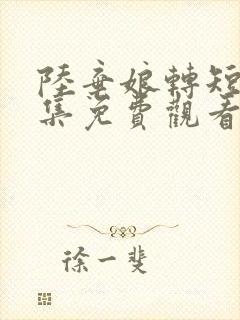 陸棄娘轉短
集免費觀看
徐一斐